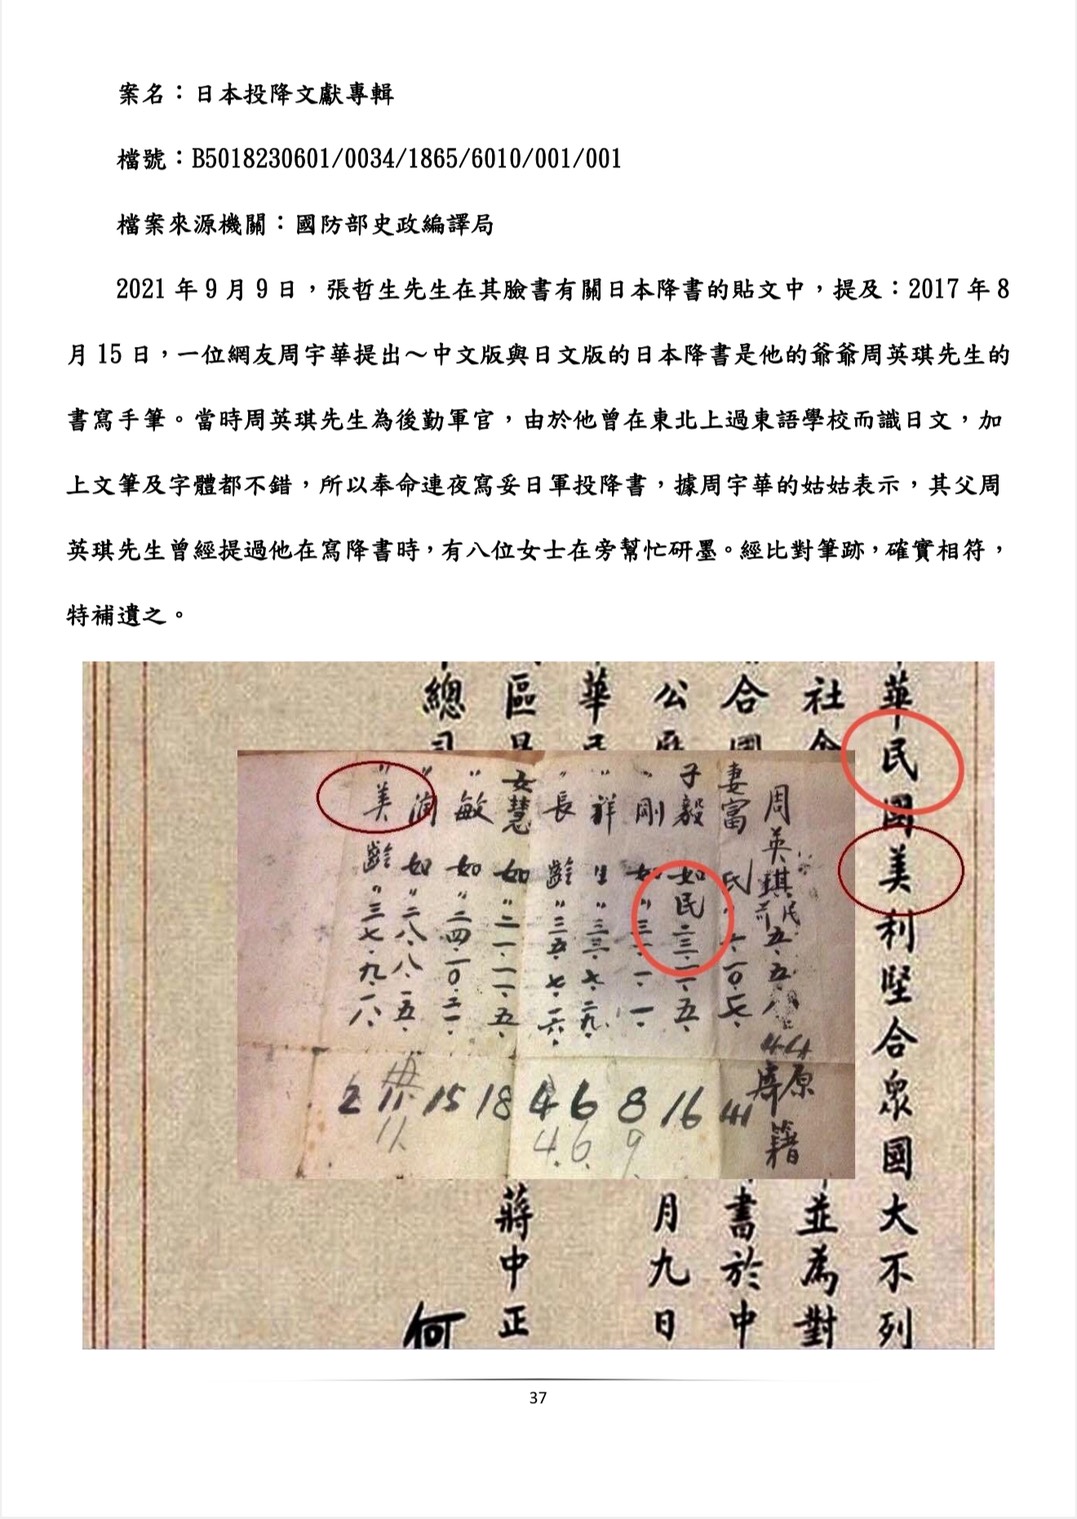 案名：日本投降文獻專輯
檔號：B5018230601/0034/1865/6010/001/001
檔案來源機關：國防部史政編譯局
2021 年 9 月 9 日，張哲生先生在其臉書有關日本降書的貼文中，提及：2017 年 8
月 15 日，一位網友周宇華提出～中文版與日文版的日本降書是他的爺爺周英琪先生的
書寫手筆。當時周英琪先生為後勤軍官，由於他曾在東北上過東語學校而識日文，加
上文筆及字體都不錯，所以奉命連夜寫妥日軍投降書，據周宇華的姑姑表示，其父周
英琪先生曾經提過他在寫降書時，有八位女士在旁幫忙研墨。經比對筆跡，確實相符，
特補遺之。
華民國美利堅合眾國大不列
社會
並為對
合國
書於中
公曆
月九日
華民
區
蔣中正
總司
何
周英琪
原籍
妻富氏
子毅如民二三一一五
〃剛如〃三一一一
〃祥生〃三三七二九
〃長齡〃三五七一六
女慧如〃二一一一五
〃敏如〃二四一〇二一
〃潤如〃二八八一五
〃美齡〃三七九一八
2 11 15 18 4 6 8 16
11 4. 6. 9
37